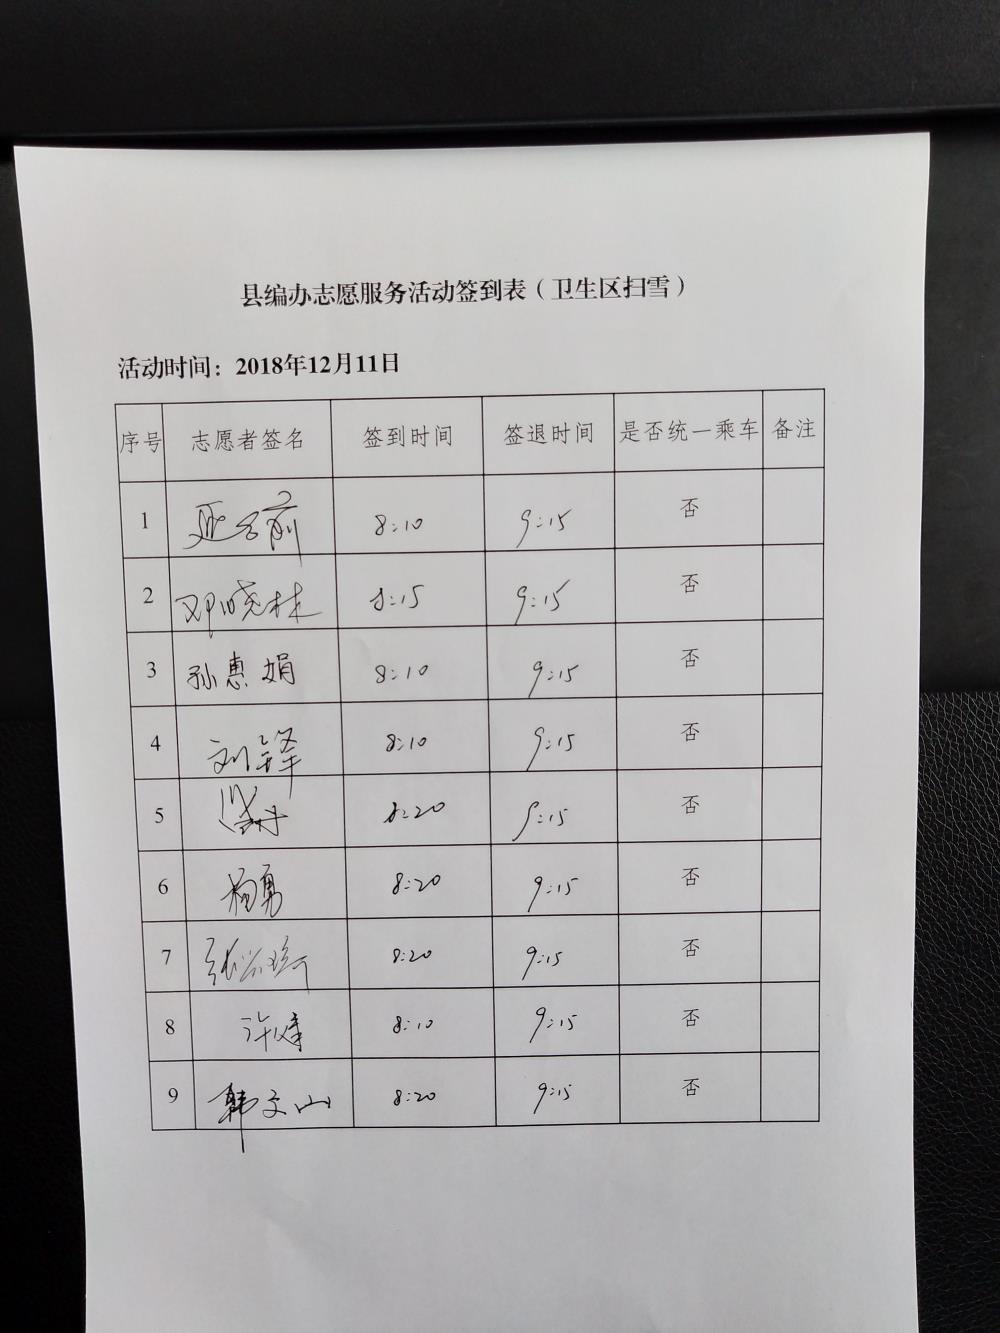 县编办志愿服务活动签到表（卫生区扫雪）
活动时间：2018年12月11日
序号 志愿者签名 签到时间 签退时间 是否统一乘车 备注
1 8:10 9:15 否
2 邓晓林 8:15 9:15 否
3 孙惠娟 8:10 9:15 否
4 刘锋 8:10 9:15 否
5 8:20 9:15 否
6 杨勇 8:20 9:15 否
7 8:20 9:15 否
8 许健 8:10 9:15 否
9 韩文山 8:20 9:15 否